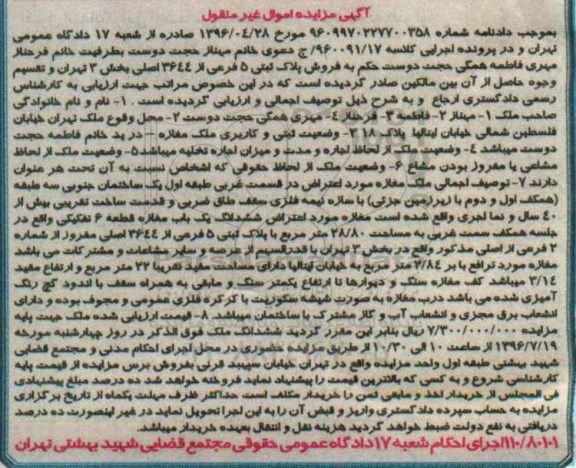 آگهی مزایده اموال غیر منقول
بموجب دادنامه شماره ۹۶۰۹۹۷۰۲۲۷۷۰۰۳۵۸ مورخ ۱۳۹۶/۰۴/۲۸ صادره از شعبه ۱۷ دادگاه عمومی
تهران و در پرونده اجرایی کلاسه ۹۶۰۰۹۱/۱۷ ج دعوی خانم میناز حجت دوست بطرفیت خانم فرحناز
مهری فاطمه همگی حجت دوست حکم به فروش پلاک ثبتی ۵ فرعی از ۳۶۴۴ اصلی بخش ۳ تهران و تقسیم
وجوه حاصل از آن بین مالکین صادر گردیده است که در این خصوص مراتب جهت ارزیابی به کارشناس
رسمی دادگستری ارجاع و به شرح ذیل توصیف اجمالی و ارزیابی گردیده است . ۱- نام و نام خانوادگی
صاحب ملک ۱- میناز ۲- فاطمه ۳- فرحناز ۴- مهری همگی حجت دوست ۲- محل وقوع ملک تهران خیابان
فلسطین شمالی خیابان ایتالیا پلاک ۱۸ ۳- وضعیت ثبتی و کاربری ملک مغازه – در ید خانم فاطمه حجت
دوست میباشد ۴- وضعیت ملک از لحاظ اجاره و مدت و میزان اجاره تخلیه میباشد ۵- وضعیت ملک از لحاظ
مشاعی یا مفروز بودن مشاع ۶- وضعیت ملک از لحاظ حقوقی که اشخاص نسبت به آن تحت هر عنوان
دارند ۷- توصیف اجمالی ملک مغازه مورد اعتراض در قسمت غربی طبقه اول یک ساختمان جنوبی سه طبقه
(همکف اول و دوم با زیرزمین جزئی) با سازه نیمه فلزی سقف طاق ضربی و قدمت ساخت تقریبی بیش از
۴۰ سال و نما آجری واقع شده است مغازه مورد اعتراض ششدانگ یک باب مغازه قطعه ۶ تفکیکی واقع در
جلسه همکف سمت غربی به مساحت ۲۸/۸۰ متر مربع با پلاک ثبتی ۵ فرعی از ۳۶۴۴ اصلی مفروز از شماره
۲ فرعی از اصلی مذکور واقع در بخش ۳ تهران با قدرالسهم از عرصه و سایر مشاعات و مشترکات می باشد
مغازه مورد ترافع با بر ۳/۸۴ متر مربع به خیابان ایتالیا دارای مساحت مفید تقریبا ۲۲ متر مربع و ارتفاع مفید
۳/۱۴ میباشد کف مغازه سنگ و دیوارها تا ارتفاع یکمتر سنگ و مابقی به همراه سقف با اندود گچ رنگ
آمیزی شده می باشد درب مغازه به صورت شیشه سکوریت با کرکره فلزی عمومی و مجوف بوده و دارای
انشعاب برق مجزی و انشعاب آب و گاز مشترک با ساختمان میباشد. ۸- قیمت ارزیابی شده ملک جهت پایه
مزایده ۷/۳۰۰/۰۰۰/۰۰۰ ریال بنابر این مقرر گردید ششدانگ ملک فوق الذکر در روز چهارشنبه مورخه
۱۳۹۶/۷/۱۹ از ساعت ۱۰ الی ۱۰/۳۰ از طریق مزایده حضوری در محل اجرای احکام مدنی و مجتمع قضایی
شهید بهشتی طبقه اول واحد مزایده واقع در تهران خیابان سپهبد قرنی بفروش برس مزایده از قیمت پایه
کارشناسی شروع و به کسی که بالاترین قیمت را پیشنهاد نماید فروخته خواهد شد ده درصد مبلغ پیشنهادی
فی المجلس از خریدار اخذ و مابقی ثمن را خریدار مکلف است حداکثر ظرف مهلت یکماه از تاریخ برگزاری
مزایده به حساب سپرده دادگستری واریز و قبض آن را به این اجرا تحویل نماید در غیر اینصورت ده درصد
دریافتی به نفع دولت ضبط خواهد گردید هزینه نقل و انتقال بعهده خریدار میباشد.
۱۱۰/۸۰۱۰۱ اجرای احکام شعبه ۱۷ دادگاه عمومی حقوقی مجتمع قضایی شهید بهشتی تهران